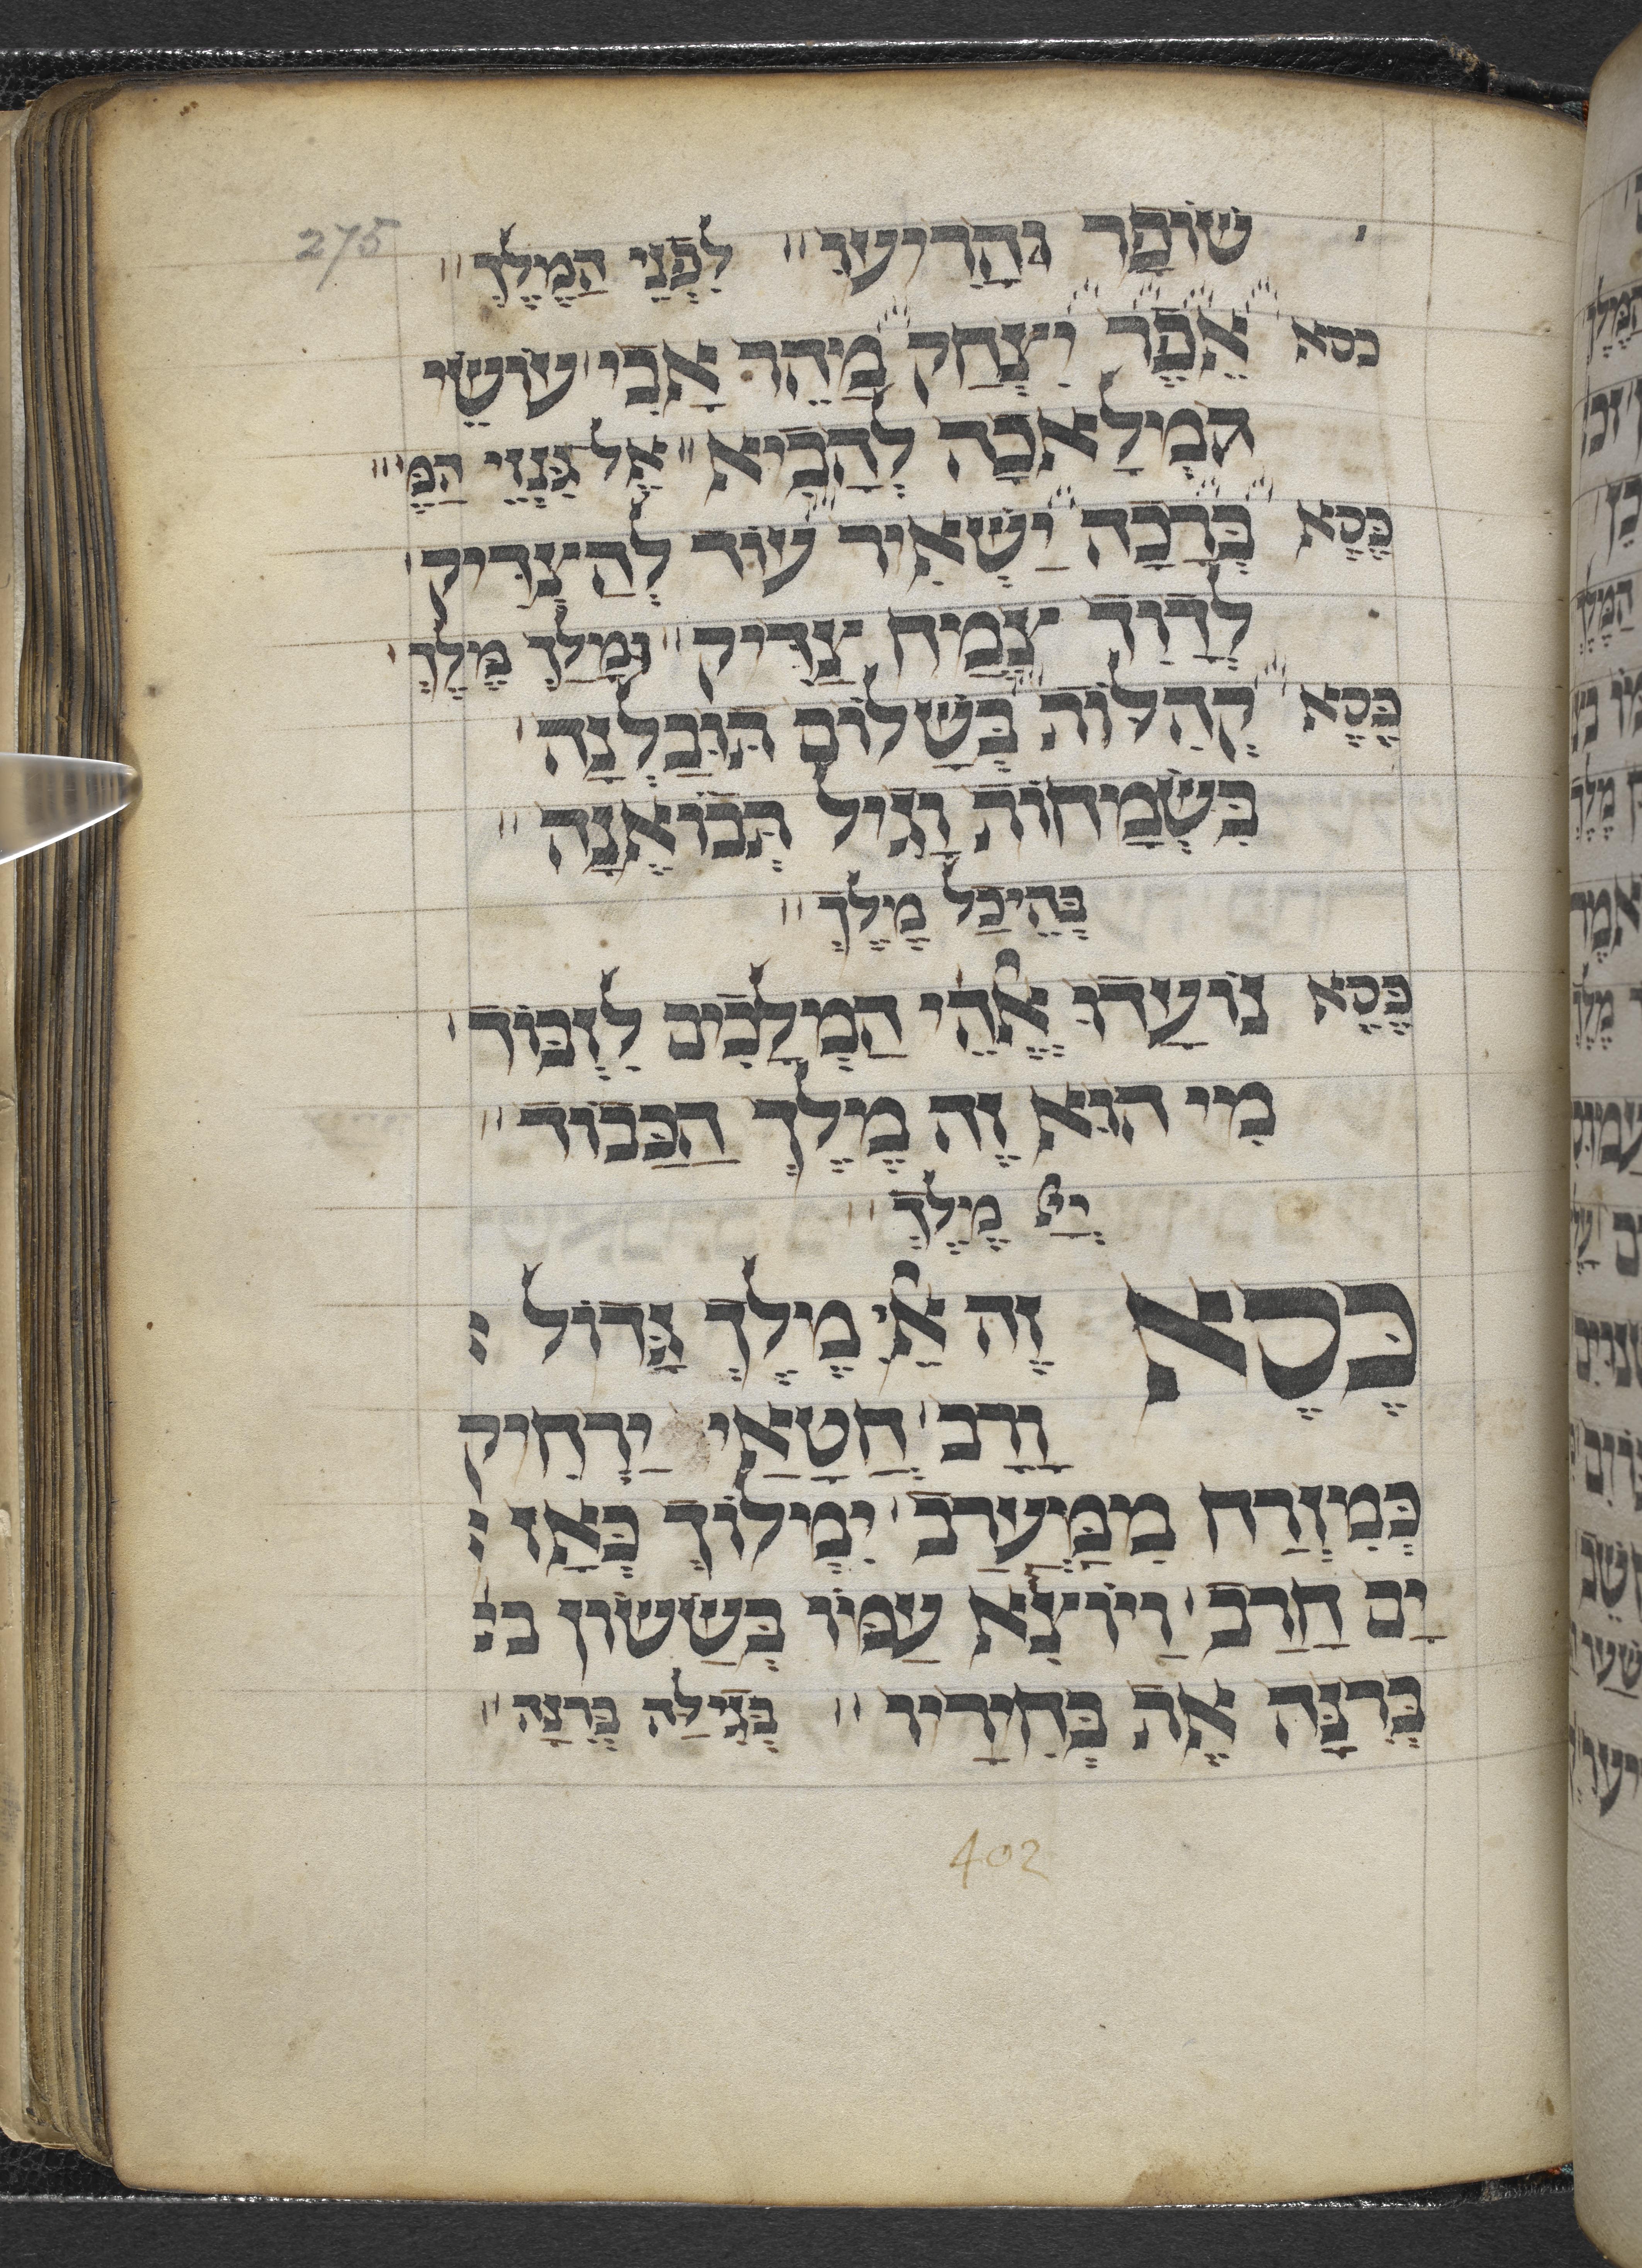 275
שׁוֹפָר וְהָרִיעוּ״ לִפְנֵי הַמֶּלֶךְ״
כסא אֵפֶר יִצְחַק מַהֵר אָבִי׳ עוֹשֵׂי
הַמְלָאכָה לְהָבִיא״ אֶל גִּנְזֵי הַמֶּ׳״
כִּסֵא בְּרָכָה יַשְׁאִיר עוֹד לְהַצְדִיק׳
לְדָוִד צֶמַח צַדִּיק״ וּמָלַךְ מֶלֶךְ׳
כִּסֵא קְהִלּוֹת בְּשָׁלוֹם תּוּבַלְנָה׳
בִּשְׂמָחוֹת וָגִיל תְּבוֹאֶנָה״
בְּהֵיכַל מֶלֶךְ״
כִּסֵא נוֹעֲדוּ אֱלֹהֵי הַמְּלָכִים לִזְבּוֹד׳
מִי הוּא זֶה מֶלֶךְ הַכָּבוֹד״
יְיָ מֶלֶךְ״
כִּסֵא זֶה אֵלִי מֶלֶךְ גָּדוֹל׃
וָרָב׳ חֲטָאַי יַרְחִיק
כְּמִזְרַח מִמַּעֲרָב׳ יִמְלוֹךְ כְּאָז׃
יָם חָרַב׳ וַיּוֹצִא עַמּוֹ בְּשָׂשׂוֹן ב׳׃
בְּרִנָּה אֶת בְּחִירָיו״ בְּגִילָה בְּרִנָּה״
402